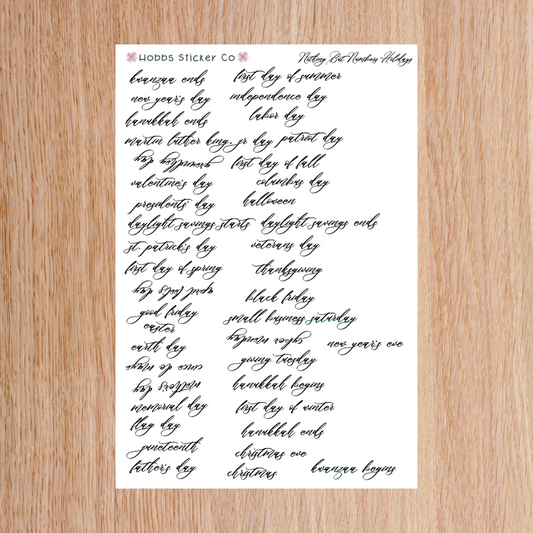 Hobbs Sticker Co
Nothing But Numbers-Holidays
kwanzaa ends
new year's day
hanukkah ends
martin luther king, jr day
groundhog day
valentine's day
presidents' day
daylight savings starts
st. patrick's day
first day of spring
april fool's day
good friday
easter
earth day
cinco de mayo
mother's day
memorial day
flag day
juneteenth
father's day
first day of summer
independence day
labor day
patriot day
first day of fall
columbus day
halloween
daylight savings ends
veterans day
thanksgiving
black friday
small business saturday
cyber monday
giving tuesday
hanukkah begins
first day of winter
hanukkah ends
christmas eve
christmas
new year's eve
kwanzaa begins